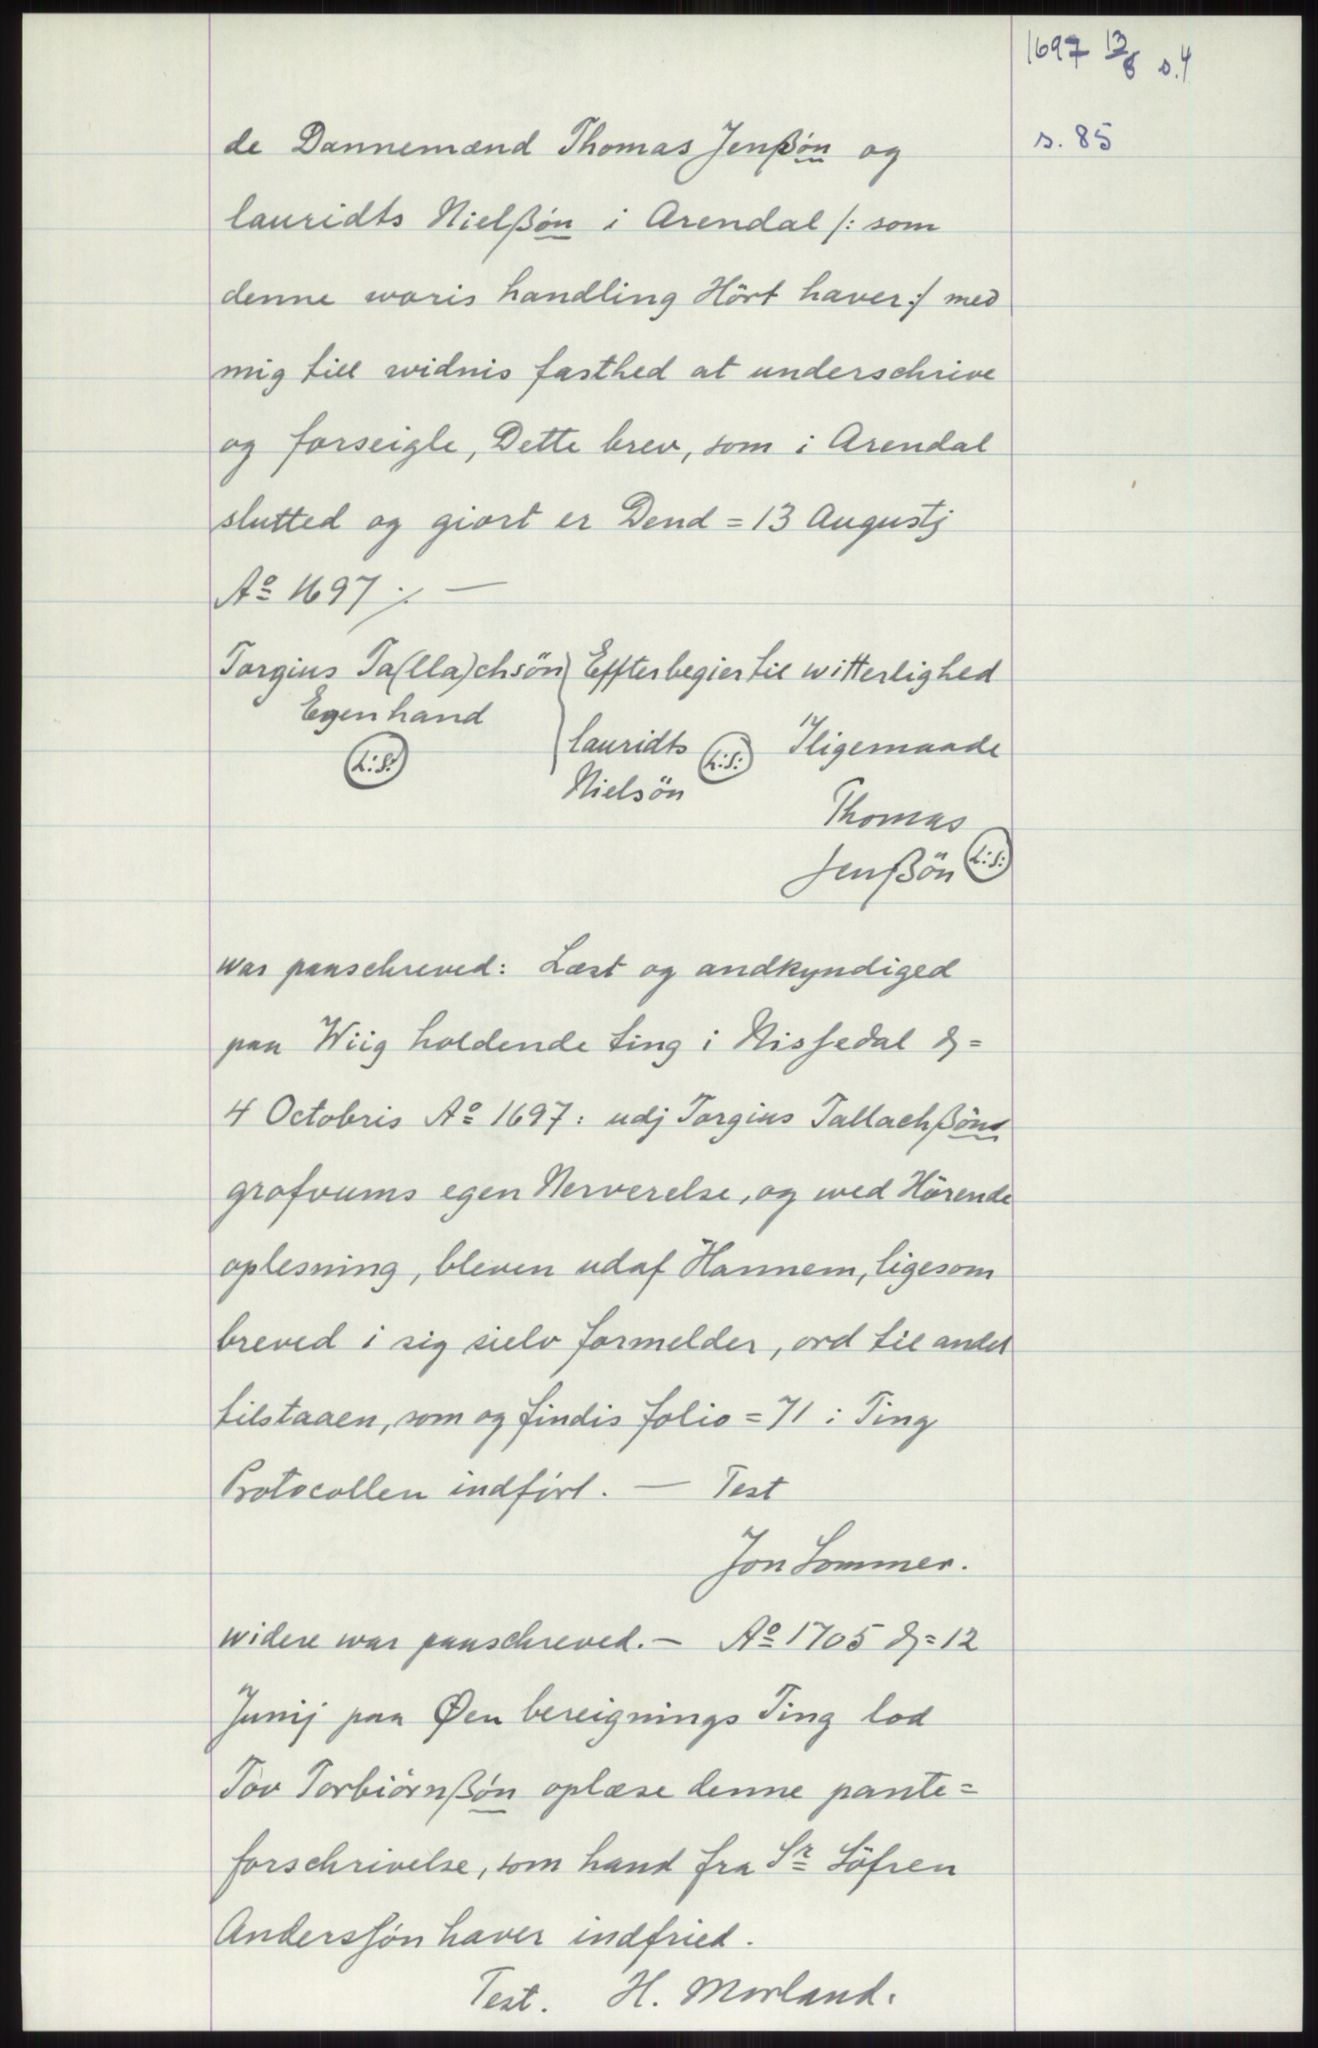 1697 13/8 s.4
s. 85
de Dannemænd Thomas Jenßön og
lauridts Nielßön i Arendal /: som
denne woris handling Hört haver :/ med
mig till widnis fasthed at underschrive
og forseigle, Dette brev, som i Arendal
slutted og giort er Dend = 13 Augustj
Aº 1697 ./. —
Torgius Ta(lla)chsön } Effterbegier til witterlighed
Egenhand
lauridts (L:S:) Iligemaade
(L:S:)
Nielsön
Thomas
Jenßön (L:S:)
war paaschreved: Læst og andkyndiged
paa Wiig holdende ting i Nissedal d =
4 Octobris Aº 1697: udj Torgius Tallachßöns
grofvums egen Nerverelse, og wed Hörende
oplesning, bleven udaf Hannem, ligesom
breved i sig sielv formelder, ord til andet
tilstaaen, som og findis folio = 71 i Ting
Protocollen indfört. — Test
Jon Sommer.
widere war paaschreved. — Aº 1705 d = 12
Junij paa Øen bereignings Ting lod
Tov Torbiörnßön oplæse denne pante=
forschrivelse, som hand fra Sr Söfren
Andersson haver indfried.
Test. H. Morland.